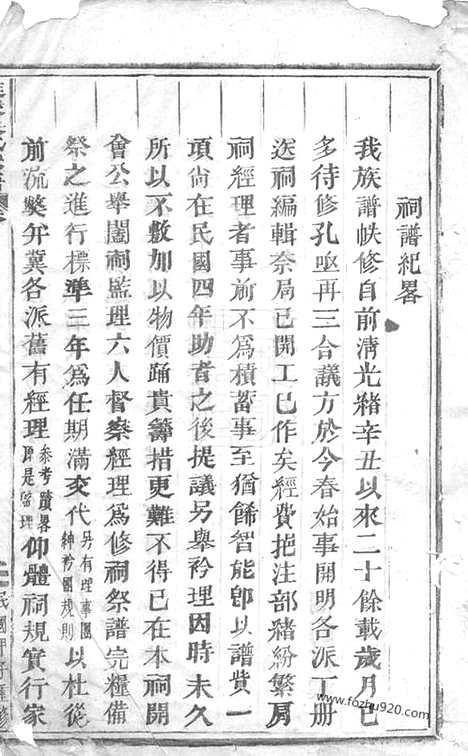 祠譜紀畧
我族譜帙修自前清光緒辛丑以來二十餘載歲月已
多待修孔亟再三合議方於今春始事開明各派丁册
送祠編輯奈局已開工已作矣經費挹注部緒紛繁局
祠經理者事前不為積蓄事至猶餙智能卽以譜費一
項尚在民國四年助者之後提議另舉衿理因時未久
所以不敷加以物價踊貴籌措更難不得已在本祠開
會公舉闔祠監理六人督察經理為修祠祭譜完糧備
祭之進行標準三年為任期滿交代另有理事團紳衿團規則以杜從
前流獘并冀各派舊有經理參考蹟畧卽是監理仰體祠規實行家
民國甲子重修
www.fozhu920.com